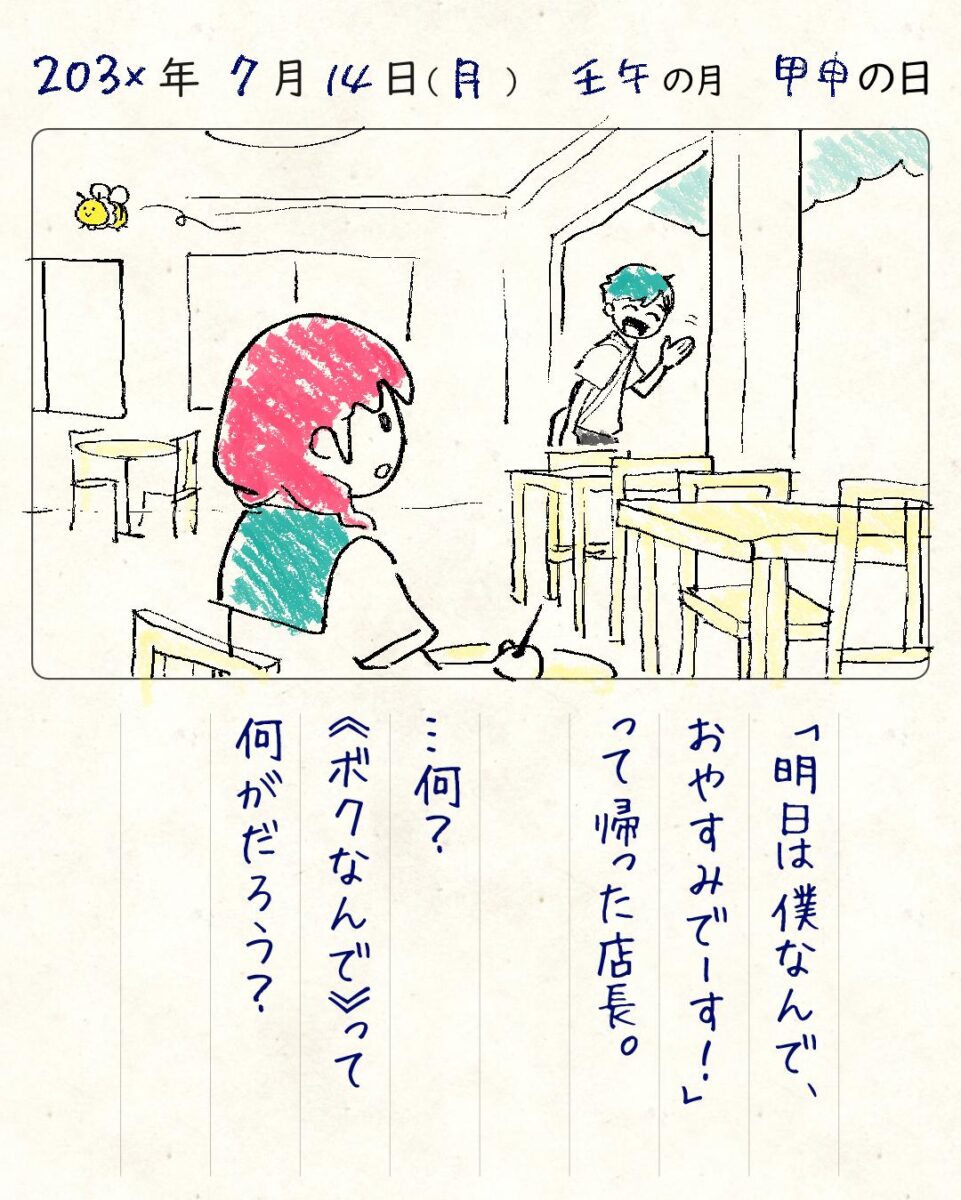 203x年 7月14日(月) 壬午の月 甲申の日
「明日は僕なんで、
おやすみでーす!」
って帰った店長。
…何?
《ボクなんで》って
何がだろう?